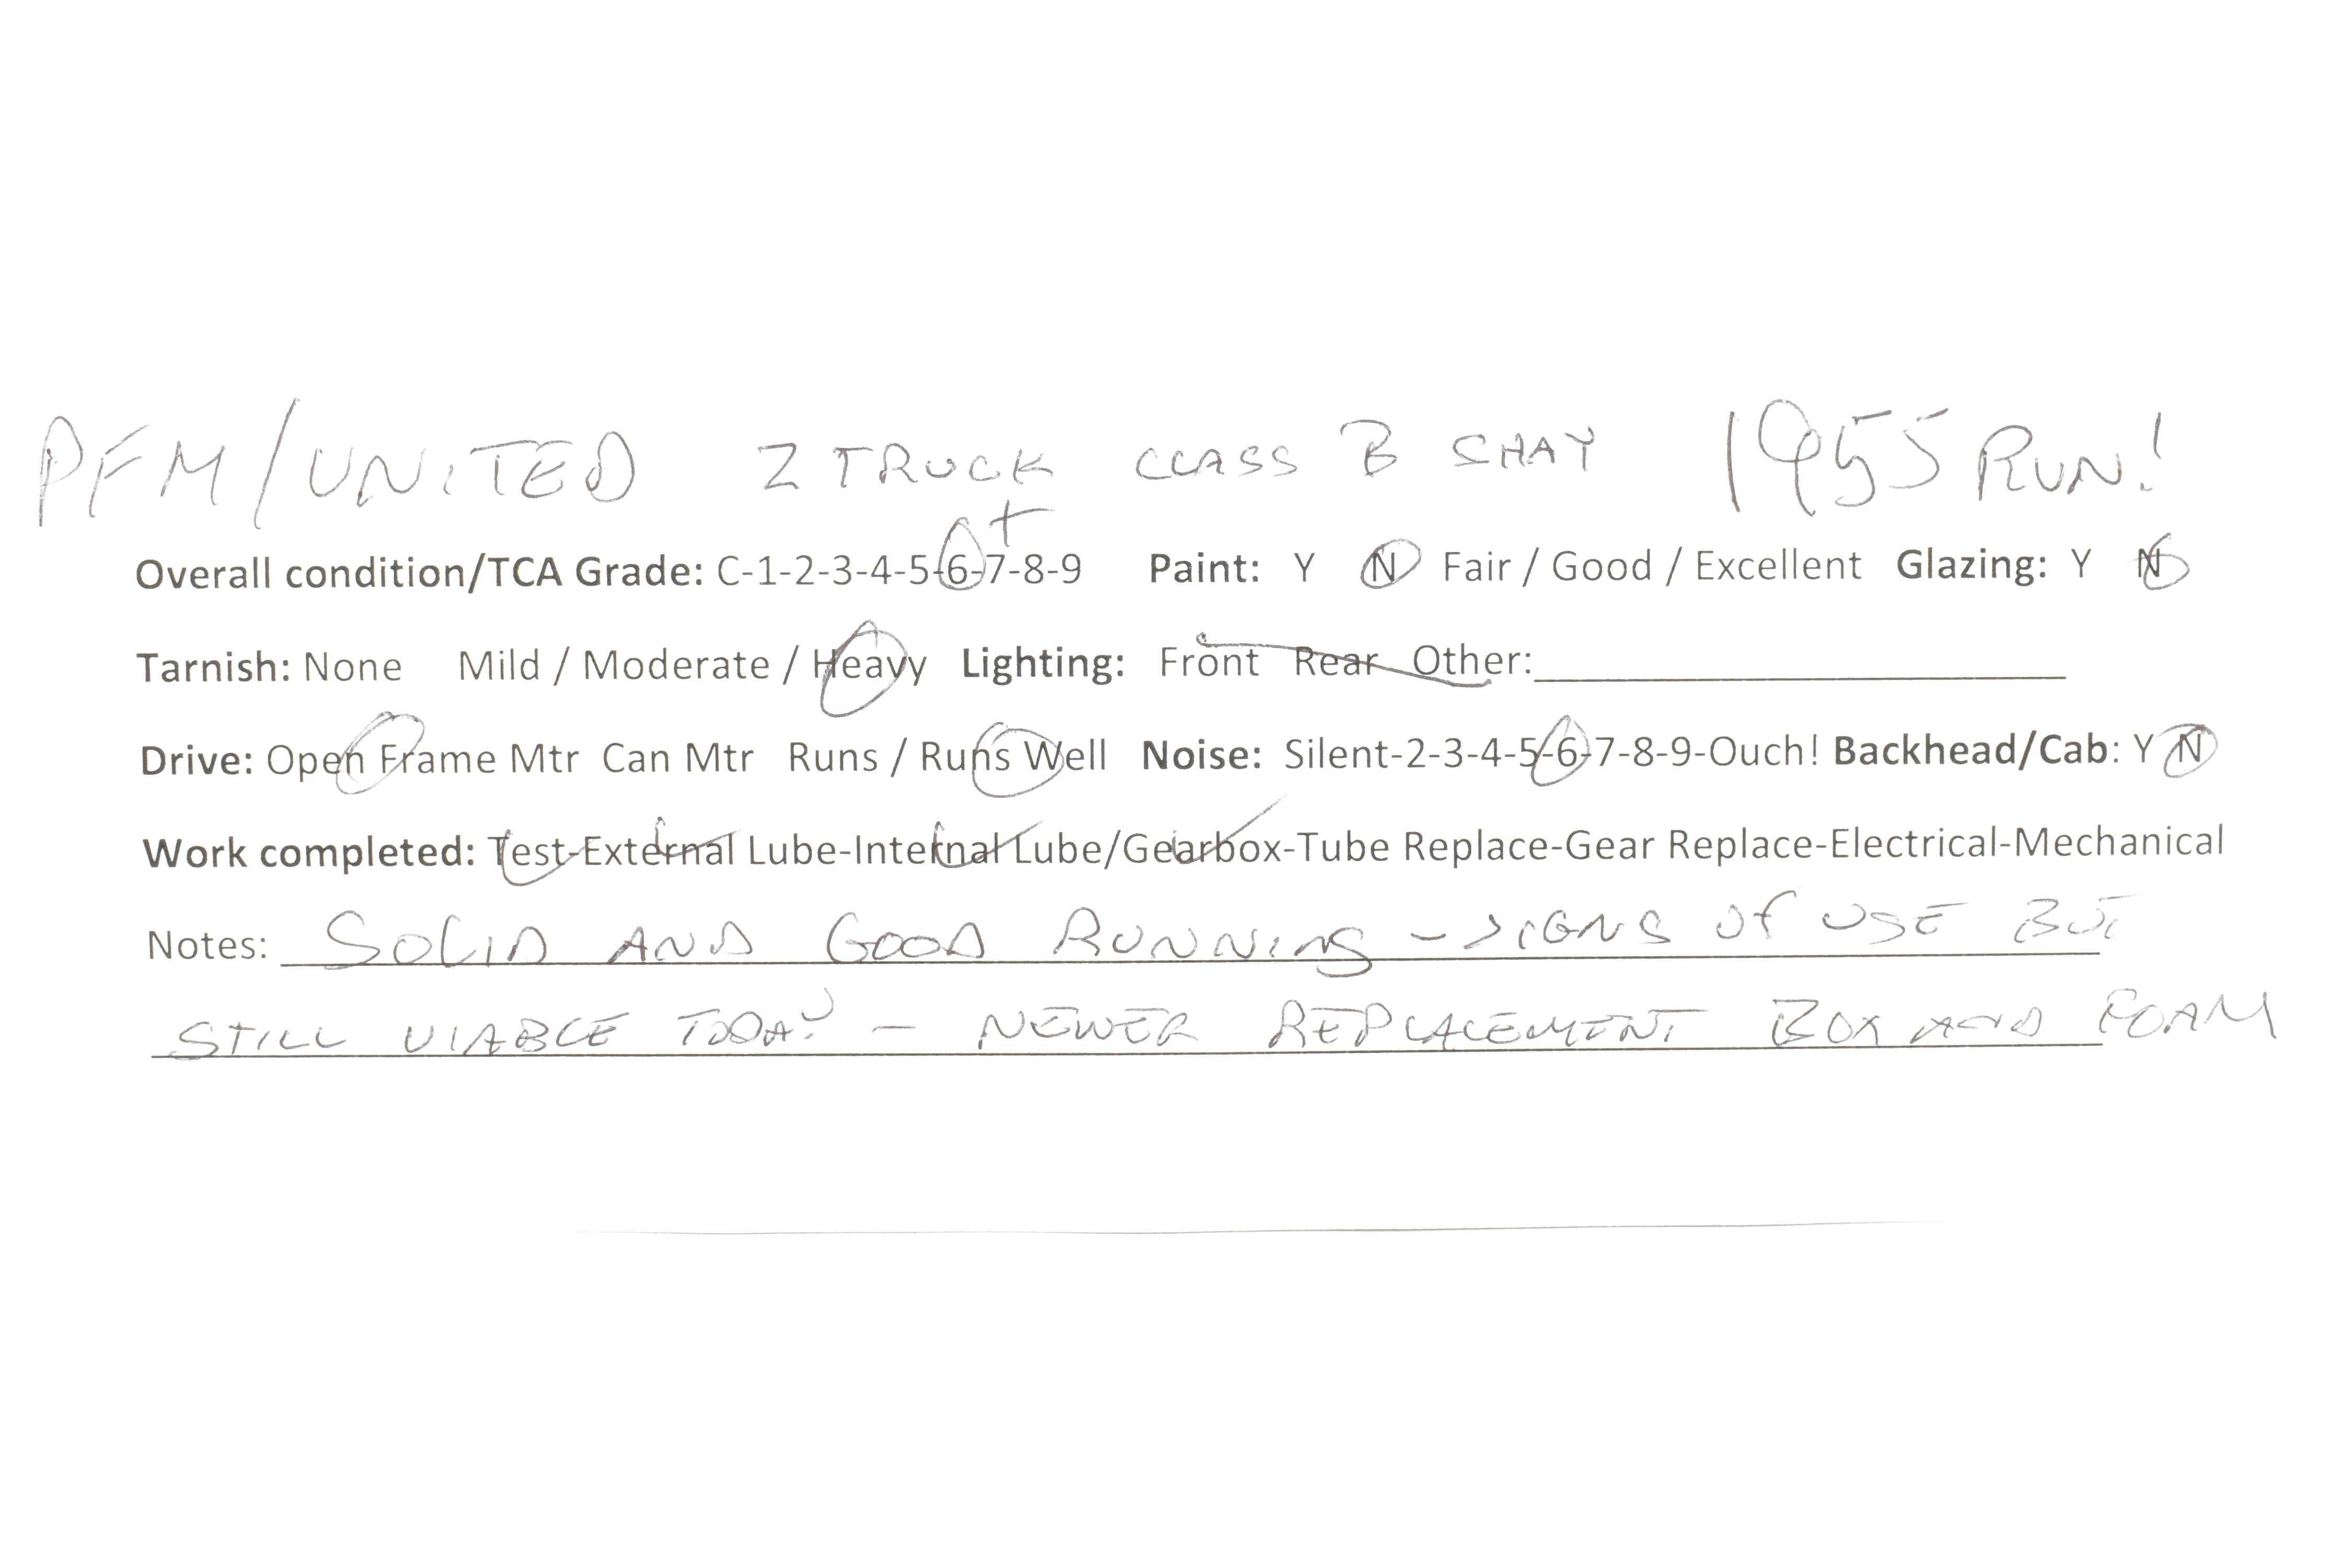 PFM/UNITED 2 TRUCK CLASS B SHAY 1955 RUN!
+
Overall condition/TCA Grade: C-1-2-3-4-5-6-7-8-9 Paint: Y N Fair / Good / Excellent Glazing: Y N
Tarnish: None Mild / Moderate / Heavy Lighting: Front Rear Other:
Drive: Open Frame Mtr Can Mtr Runs / Runs Well Noise: Silent-2-3-4-5-6-7-8-9-Ouch! Backhead/Cab: Y N
Work completed: Test-External Lube-Internal Lube/Gearbox-Tube Replace-Gear Replace-Electrical-Mechanical
Notes: SOLID AND GOOD RUNNING - SIGNS OF USE BUT
STILL VIABLE TODAY - NEWER REPLACEMENT BOX AND FOAM